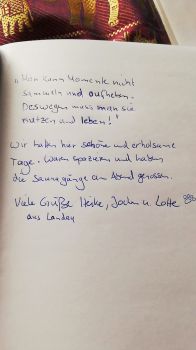 „Man kann Momente nicht
sammeln und aufheben.
Deswegen muss man sie
nutzen und leben!"
Wir hatten hier schöne und erholsame
Tage. Waren spazieren und haben
die Saunagänge am Abend genossen.
Viele Grüße Heike, Jochen u. Lotte
aus Landau